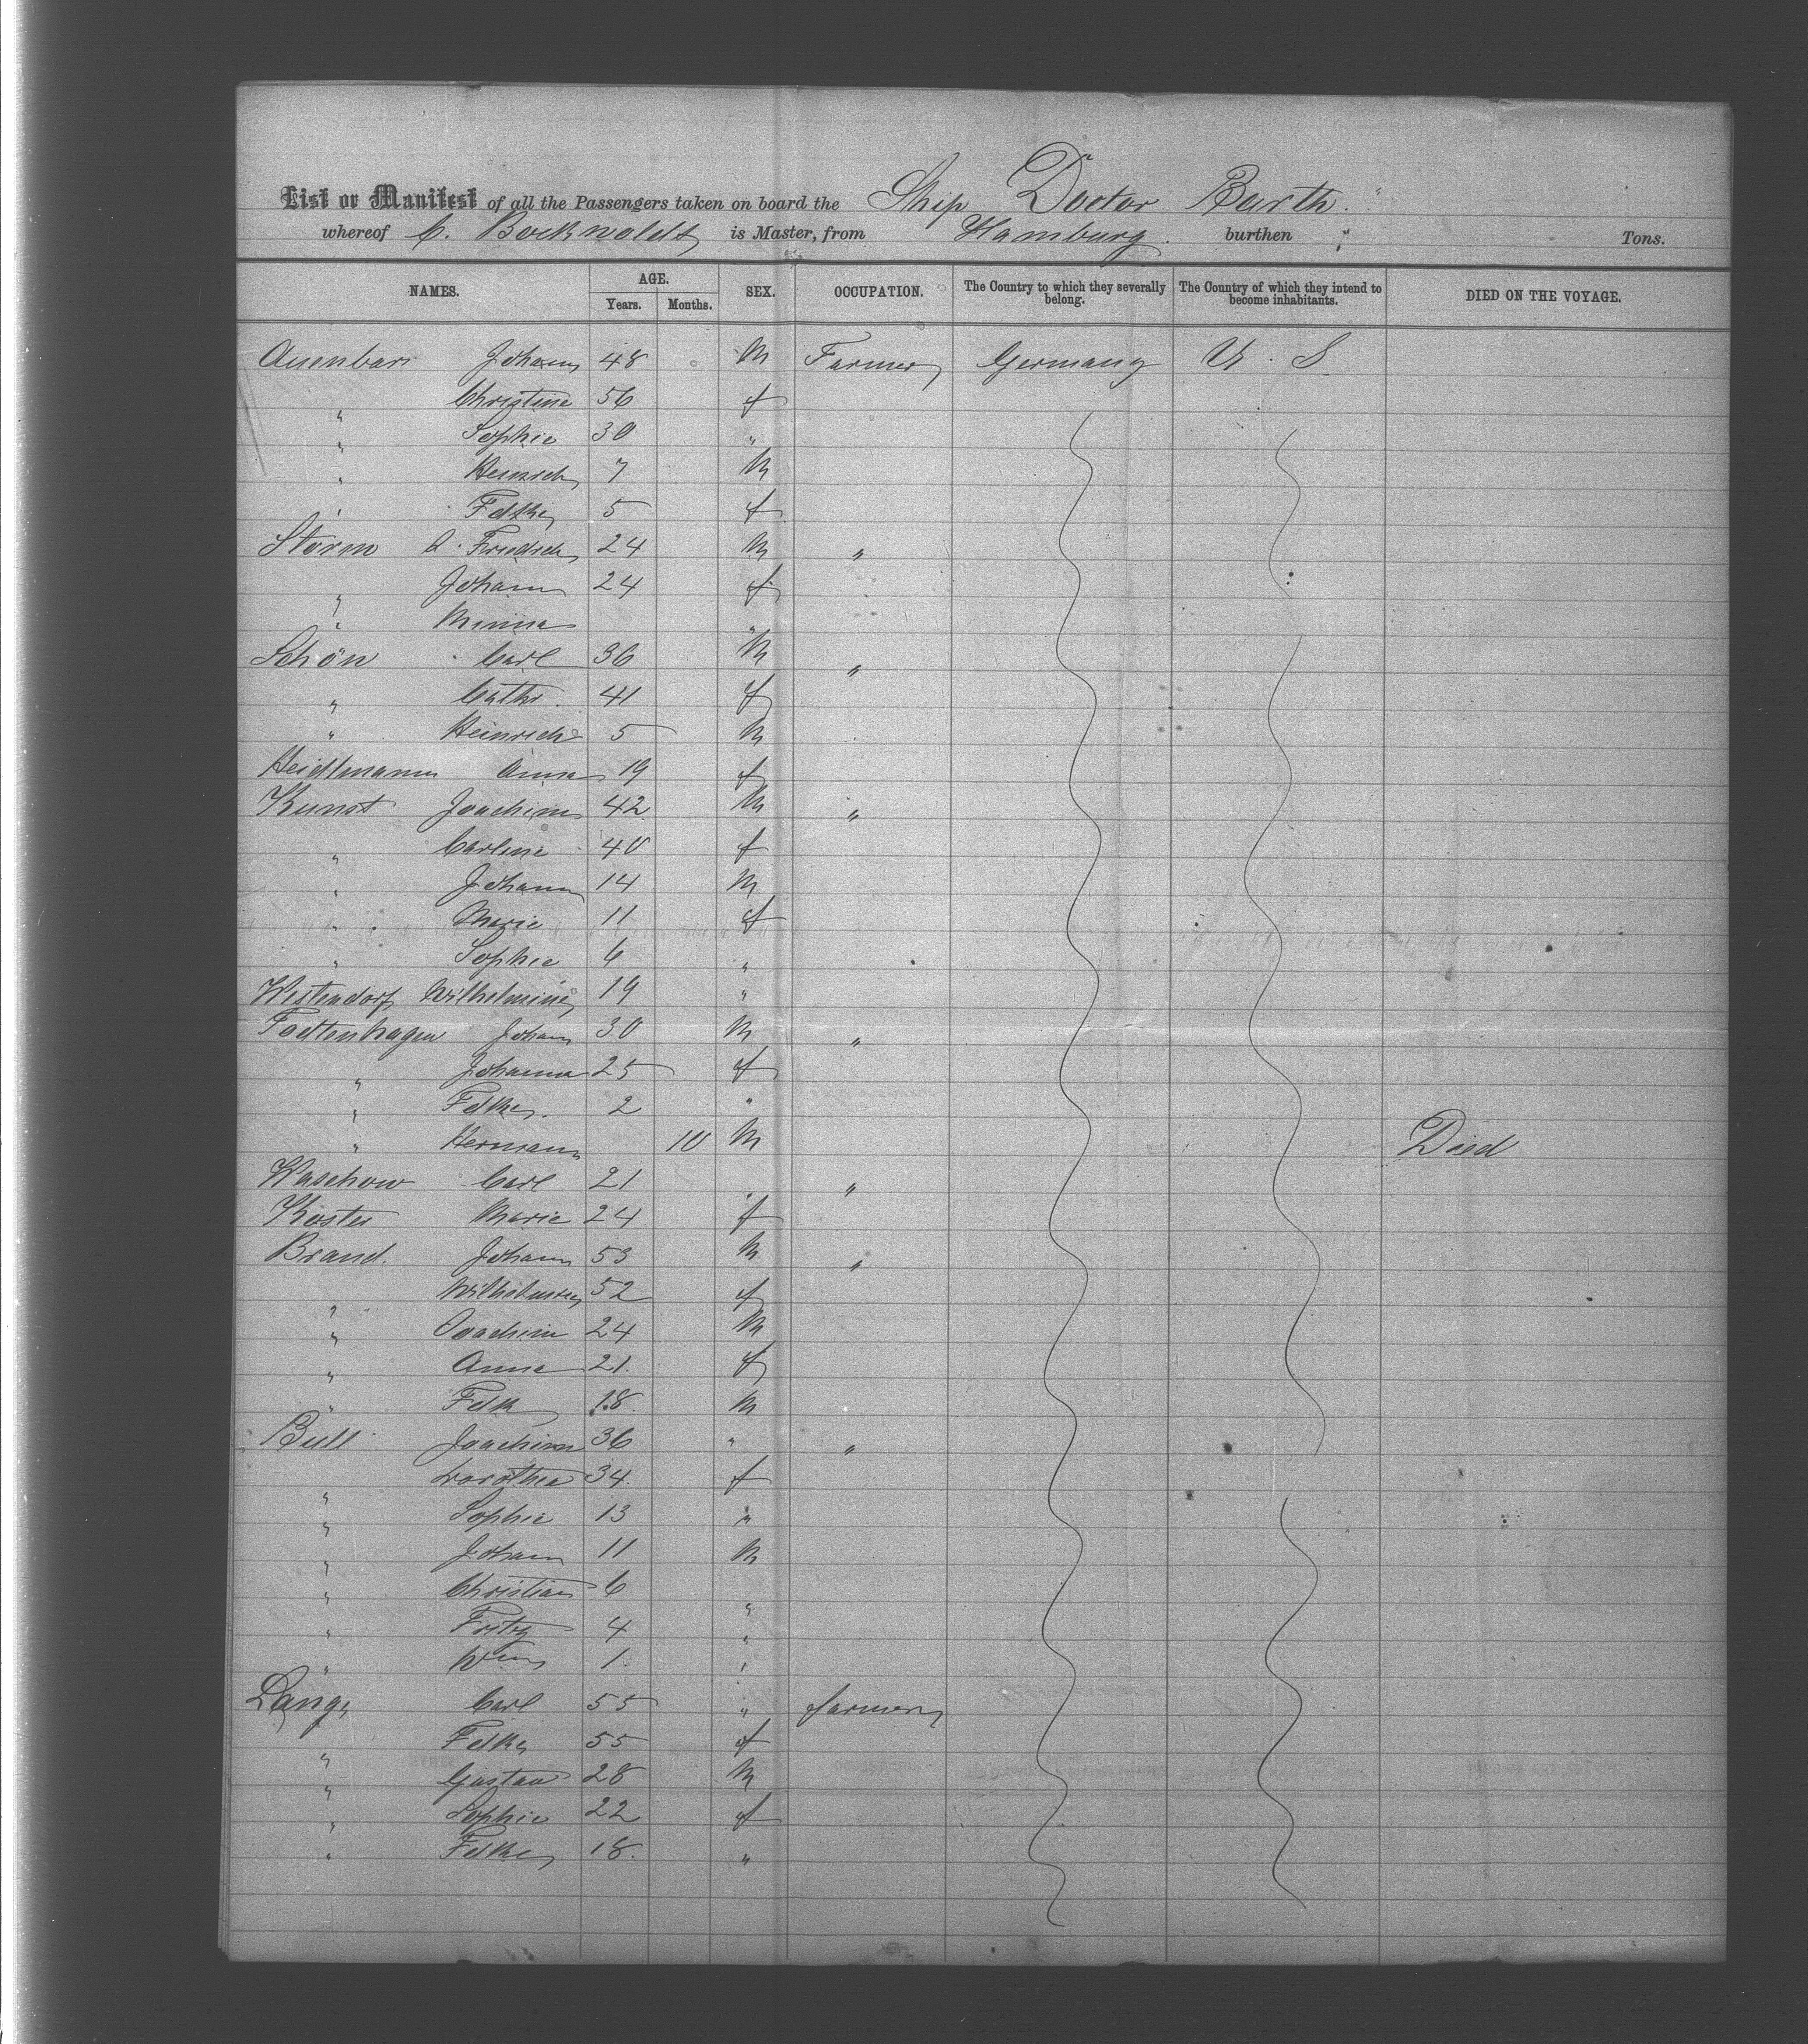 List or Manifest of all the Passengers taken on board the Ship "Doctor Barth"
whereof C. Bockwoldt is Master, from Hamburg. burthen Tons.
NAMES. AGE. Years. Months. SEX. OCCUPATION. The Country to which they severally belong. The Country of which they intend to become inhabitants. DIED ON THE VOYAGE.
Johann 48 M Farmer Germany U. S.
" Christine 56 f
" Sophie 30 "
" Heinrich 7 M
" 5 f
Storm Friedrich 24 M "
" Johann 24 f
" Minna "
Schön Carl 36 M "
" Cathr. 41 f
" Heinrich 5 M
Heidtmann Anna 19 f
Kunst Joachim 42 M "
" Carline 40 f
" Johann 14 M
" Marie 11 f
" Sophie 6 "
Westendorf Wilhelmine 19 "
Todtenhagen Johann 30 M "
" Johanna 25 f
" 2 "
" Hermann 10 M Died
Waschow Carl 21 " "
Koster Marie 24 f
Brand. Johann 53 M "
" Wilhelmine 52 f
" Joachim 24 M
" Anna 21. f
" 18. M
Bull Joachim 36 " "
" Dorothea 34. f
" Sophie 13 "
" Johann 11 M
" Christian 6 "
" Fritz 4 "
" Wm 1. "
Lange Carl 55 " farmer
" 55 f
" Gustav 28 M
" Sophie 22 f
" 18. "